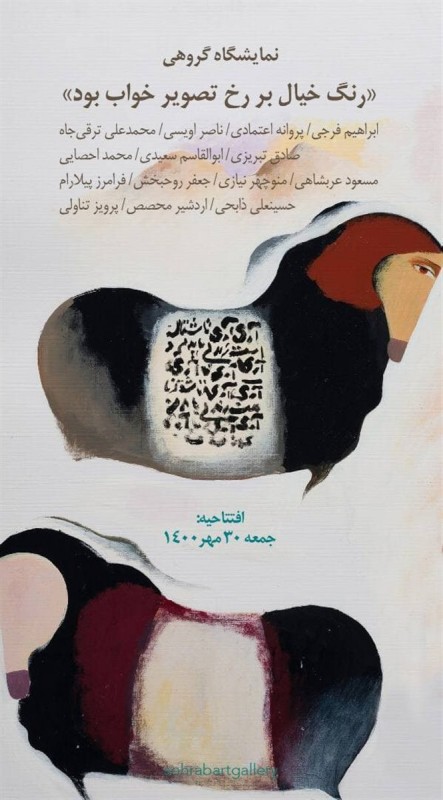 نمایشگاه گروهی
«رنگ خیال بر رخ تصویر خواب بود»
ابراهیم فرجی/ پروانه اعتمادی/ ناصر اویسی/ محمدعلی ترقی‌جاه
صادق تبریزی/ ابوالقاسم سعیدی/ محمد احصایی
مسعود عربشاهی/ منوچهر نیازی/ جعفر روحبخش/ فرامرز پیلارام
حسینعلی ذابحی/ اردشیر محصص/ پرویز تناولی
افتتاحیه:
جمعه ۳۰ مهر ۱۴۰۰
sohrabartgallery